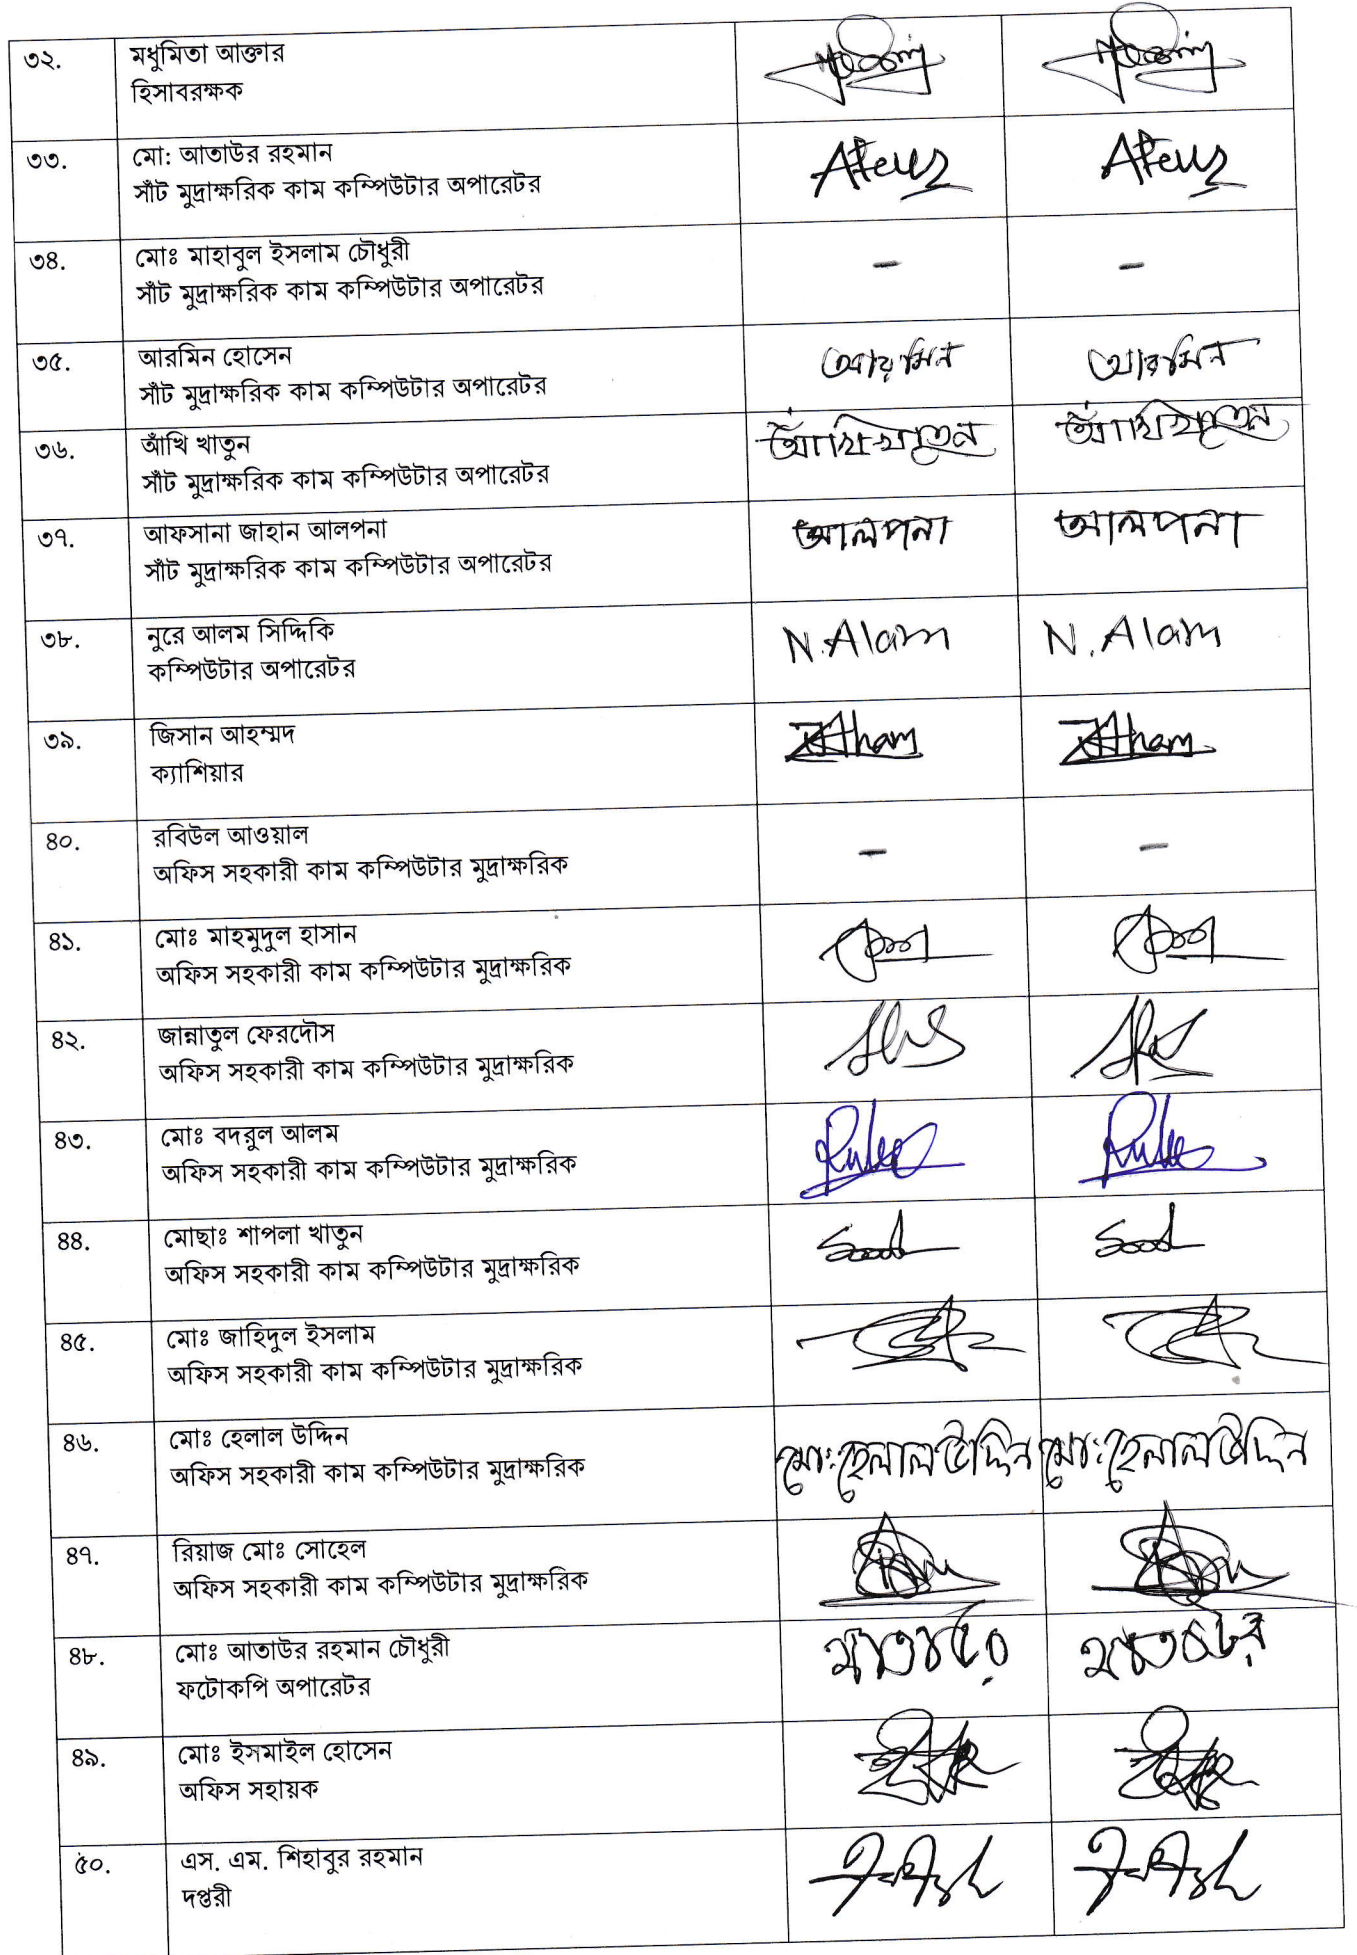 ৩২.
মধুমিতা আক্তার
হিসাবরক্ষক
৩৩.
মো: আতাউর রহমান
সাঁট মুদ্রাক্ষরিক কাম কম্পিউটার অপারেটর
৩৪.
মোঃ মাহাবুল ইসলাম চৌধুরী
সাঁট মুদ্রাক্ষরিক কাম কম্পিউটার অপারেটর
- -
৩৫.
আরমিন হোসেন
সাঁট মুদ্রাক্ষরিক কাম কম্পিউটার অপারেটর
আরমিন আরমিন
৩৬.
আঁখি খাতুন
সাঁট মুদ্রাক্ষরিক কাম কম্পিউটার অপারেটর
আঁখি খাতুন আঁখি খাতুন
৩৭.
আফসানা জাহান আলপনা
সাঁট মুদ্রাক্ষরিক কাম কম্পিউটার অপারেটর
আলপনা আলপনা
৩৮.
নুরে আলম সিদ্দিকি
কম্পিউটার অপারেটর
N. Alam N. Alam
৩৯.
জিসান আহম্মদ
ক্যাশিয়ার
৪০.
রবিউল আওয়াল
অফিস সহকারী কাম কম্পিউটার মুদ্রাক্ষরিক
- -
৪১.
মোঃ মাহমুদুল হাসান
অফিস সহকারী কাম কম্পিউটার মুদ্রাক্ষরিক
৪২.
জান্নাতুল ফেরদৌস
অফিস সহকারী কাম কম্পিউটার মুদ্রাক্ষরিক
৪৩.
মোঃ বদরুল আলম
অফিস সহকারী কাম কম্পিউটার মুদ্রাক্ষরিক
৪৪.
মোছাঃ শাপলা খাতুন
অফিস সহকারী কাম কম্পিউটার মুদ্রাক্ষরিক
৪৫.
মোঃ জাহিদুল ইসলাম
অফিস সহকারী কাম কম্পিউটার মুদ্রাক্ষরিক
৪৬.
মোঃ হেলাল উদ্দিন
অফিস সহকারী কাম কম্পিউটার মুদ্রাক্ষরিক
মো: হেলাল উদ্দিন মো: হেলাল উদ্দিন
৪৭.
রিয়াজ মোঃ সোহেল
অফিস সহকারী কাম কম্পিউটার মুদ্রাক্ষরিক
৪৮.
মোঃ আতাউর রহমান চৌধুরী
ফটোকপি অপারেটর
আতাউর আতাউর
৪৯.
মোঃ ইসমাইল হোসেন
অফিস সহায়ক
৫০.
এস. এম. শিহাবুর রহমান
দপ্তরী